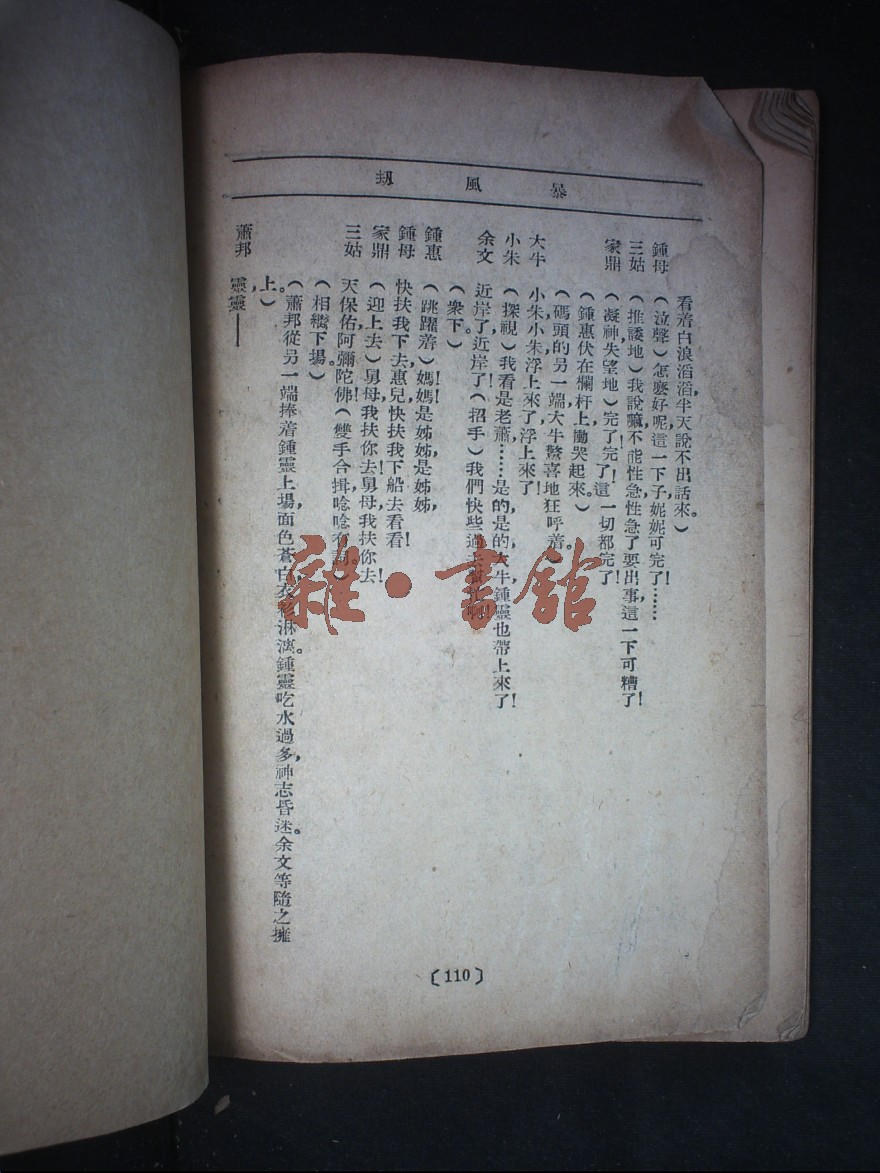 暴風刼
看着白浪滔滔，半天說不出話來。）
鍾母 （泣聲）怎麽好呢，這一下子妮妮可完了！……
三姑 （推諉地）我說嘛，不能性急，性急了要出事，這一下可糟了！
家鼎 （凝神失望地）完了！完了！這一切都完了！
（鍾惠伏在欄杆上慟哭起來。）
（碼頭的另一端，大牛驚喜地狂呼着。）
大牛 小朱，小朱，浮上來了，浮上來了！
小朱 （探視）我看是老蕭，……是的，是的，大牛，鍾靈也帶上來了！
余文 近岸了，近岸了！（招手）我們快些過去
（衆下。）
鍾惠 （跳躍着）媽媽！是姊姊，是姊姊！
鍾母 快扶我下去，惠兒，快扶我下船去看看！
家鼎 （迎上去）舅母，我扶你去，舅母，我扶你去！
三姑 天保佑，阿彌陀佛！（雙手合揖，唸唸有詞。）
（相繼下場。）
（蕭邦從另一端捧着鍾靈上場，面色蒼白，衣衫淋漓。鍾靈吃水過多，神志昏迷。余文等隨之擁
上。）
蕭邦 靈，靈——
〔110〕
雜·書館